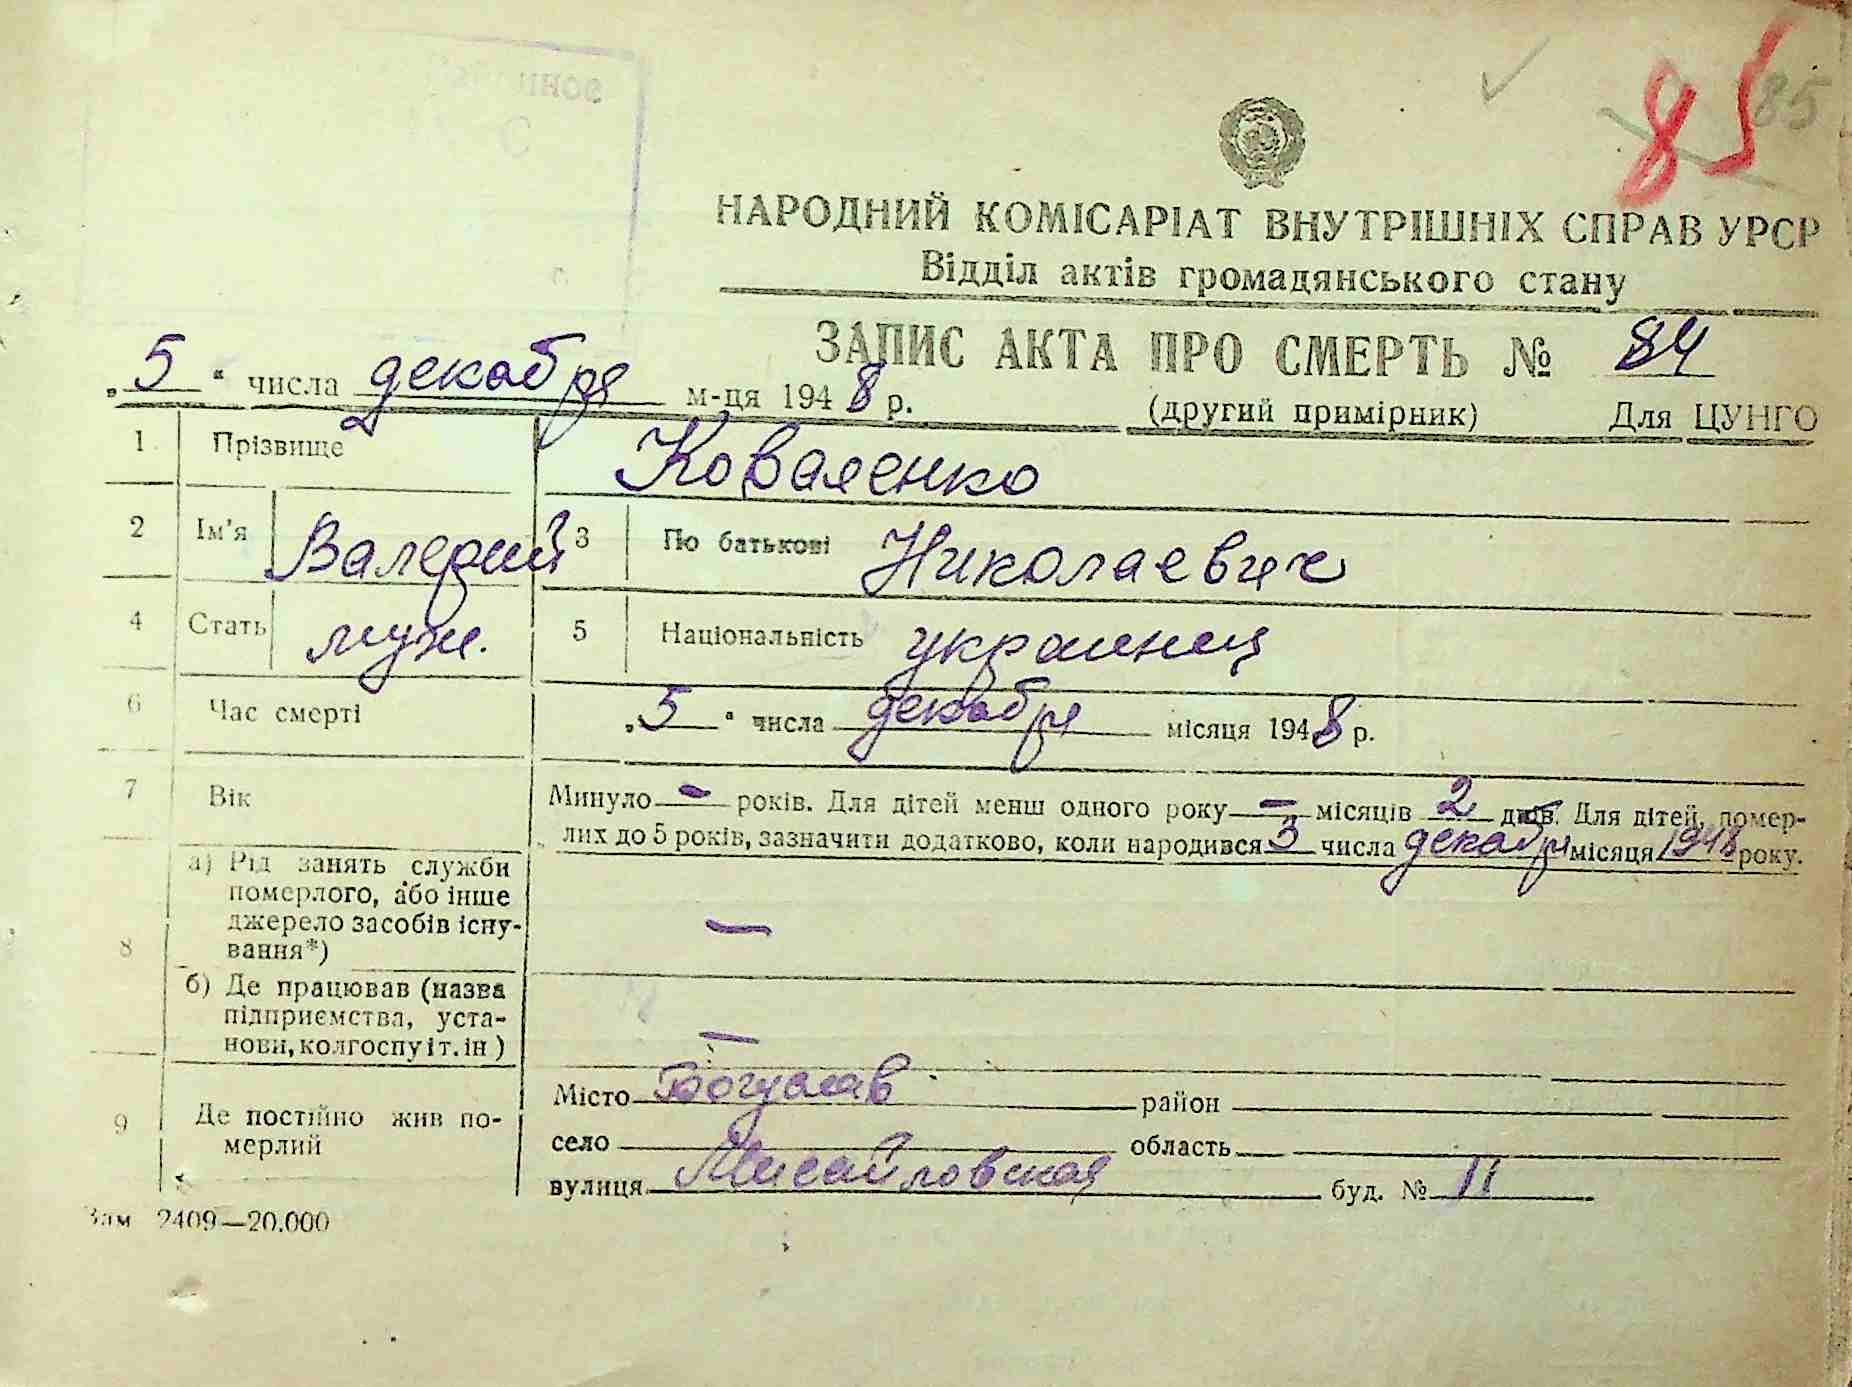 85
85
НАРОДНИЙ КОМІСАРІАТ ВНУТРІШНІХ СПРАВ УРСР
Відділ актів громадянського стану
ЗАПИС АКТА ПРО СМЕРТЬ № 84
„5“ числа декабря м-ця 1948 р.
(другий примірник) Для ЦУНГО
1 Прізвище Коваленко
2 Ім'я Валерий 3 По батькові Николаевич
4 Стать муж. 5 Національність украинец
6 Час смерті „5“ числа декабря місяця 1948 р.
7 Вік Минуло — років. Для дітей менш одного року — місяців 2 днів. Для дітей, помер-
лих до 5 років, зазначити додатково, коли народився 3 числа декабря місяця 1948 року.
8 а) Рід занять служби
померлого, або інше
джерело засобів існу-
вання*) —
б) Де працював (назва
підприємства, уста-
нови, колгоспу і т. ін) —
9 Де постійно жив по-
мерлий
Місто Богуслав район
село область
вулиця Мисайловская буд. № 11
Зам 2409—20.000